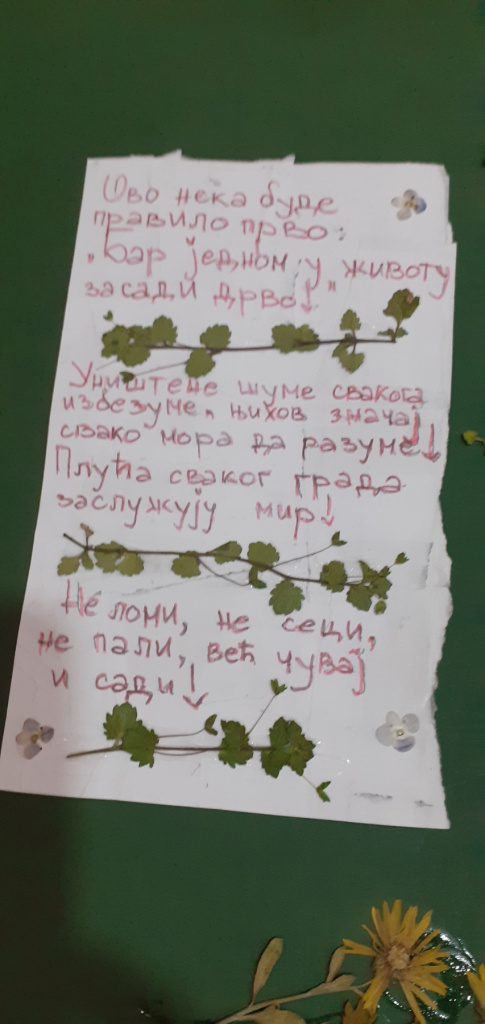 Ово нека буде
правило прво:
„Бар једном у животу
засади дрво!"
Уништене шуме свакога
избезуме, њихов значај
свако мора да разуме!
Плућа сваког града
заслужују мир!
Не ломи, не сеци,
не пали, већ чувај
и сади!